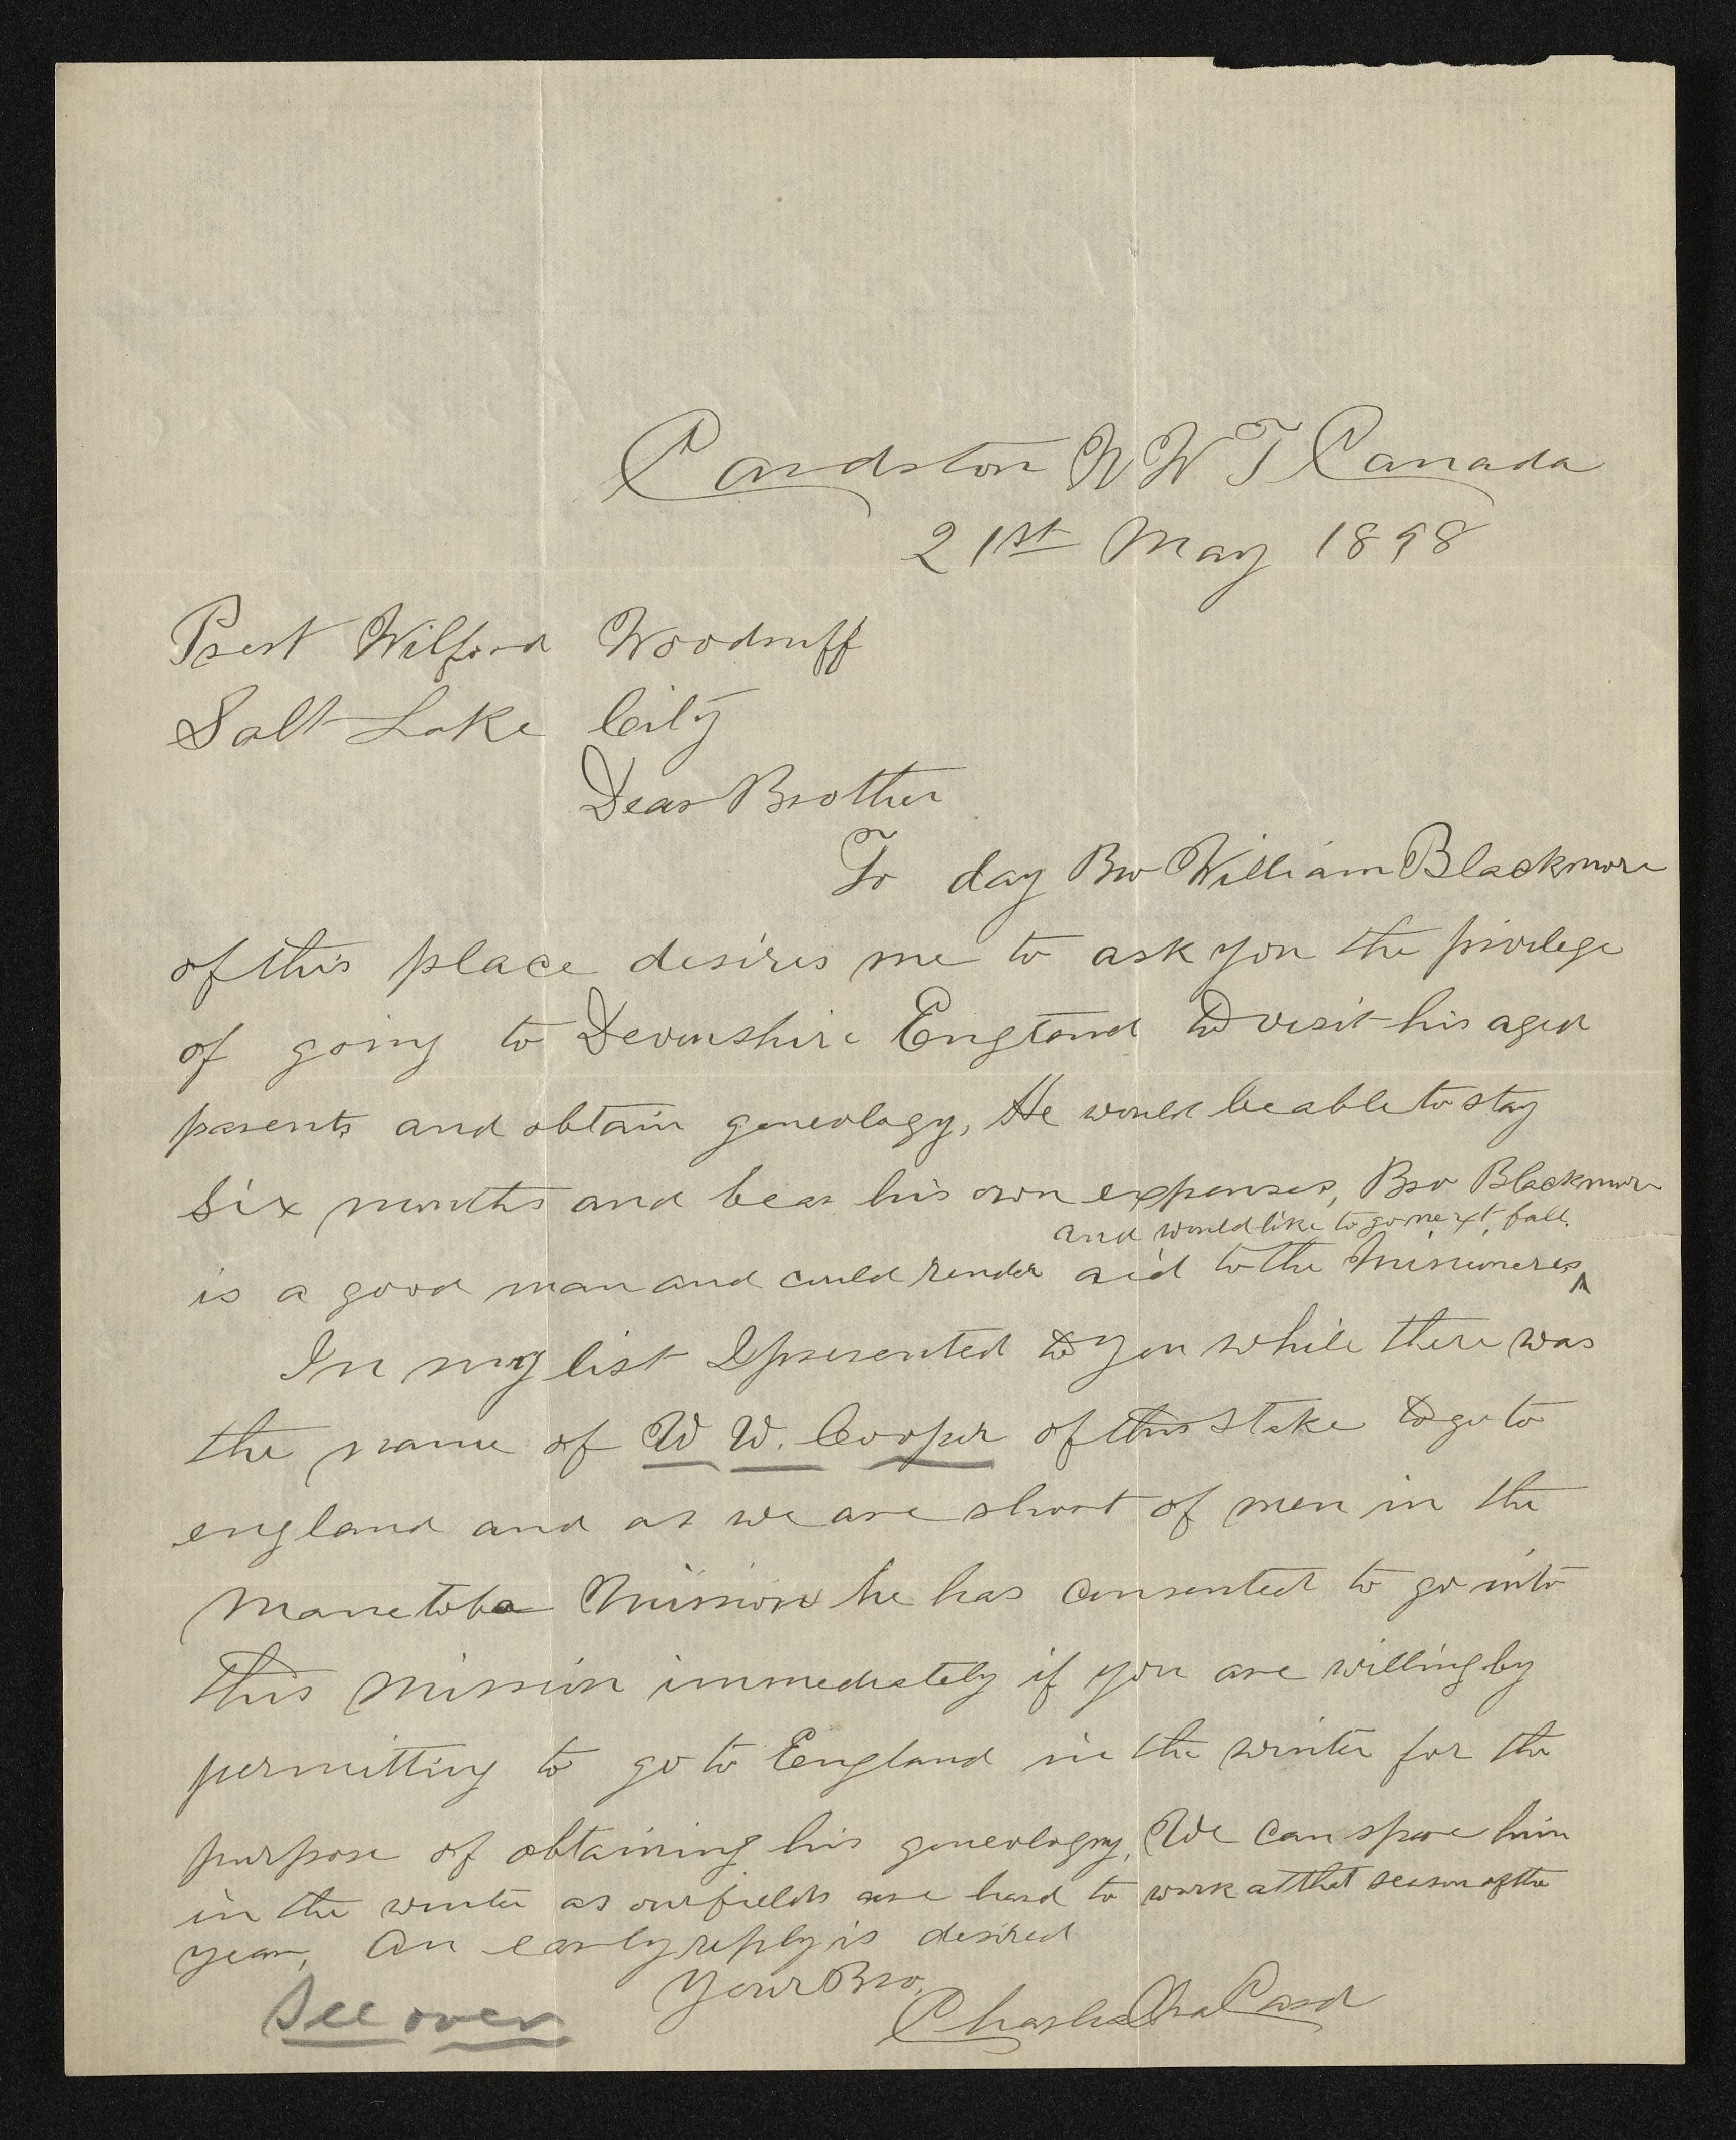 Cardston N W T Canada
21st May 1898
Prest Wilford Woodruff
Salt Lake City
Dear Brother
To day Bro William Blackmore
of this place desires me to ask you the privilege
of going to Devonshire England to visit his aged
parents and obtain geneology, He would be able to stay
six months and bear his own expenses, Bro Blackmore
and would like to go next fall.
is a good man and could render aid to the Missioneries ^
In my list I presented to you while there was
the name of W W. Cooper of this Stake to go to
england and as we are short of men in the
Manetoba Mission he has consented to go into
this mission immediately if you are willing by
permitting to go to England in the winter for the
purpose of obtaining his geneology, We can spare him
in the winter as our fields are hard to work at that season of the
year, An early reply is desired
Your Bro,
Charles Ora Card
See over